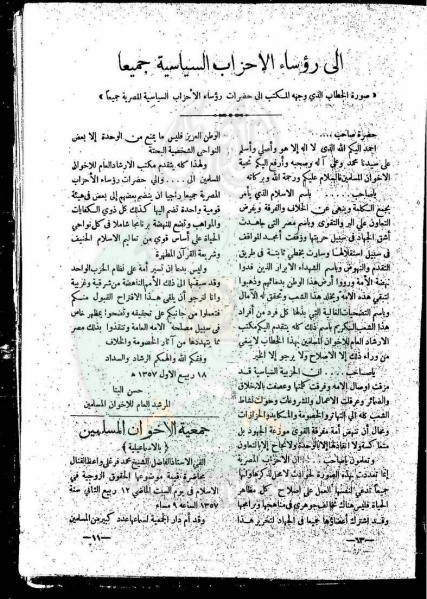 الى رؤساء الاحزاب السياسية جميعا
« صورة الخطاب الذي وجهه المكتب الى حضرات رؤساء الأحزاب السياسية المصرية جميعا »
حضرة صاحب ...
احمد اليكم الله الذى لا إله إلا هو وأصلى وأسلم
على سيدنا محمد وعلى آله وصحبه وأرفع اليكم تحية
الاخوان فالسلام عليكم ورحمة الله وبركاته
ياصاحب .... باسم الاسلام الذي يأمر
بجمع الكلمة وينهى عن الخلاف والفرقة ويفرض
التعاون على البر والتقوى وباسم مصر التى جاهدت
أشق الجهاد في سبيل حريتها ووقفت أمجد المواقف
في سبيل استقلالها وسارت بخطى ثابتة في طريق
التقدم والنهوض وباسم الشهداء الابرار الذين فدوا
نهضة الأمة ورووا أرض هذا الوطن بدمائهم وذهبوا
لتبقى هذه الامة ويخلد هذا الشعب وتحقق له الآمال
وباسم التضحيات الغالية التي بذلها كل فرد من أفراد
هذا الشعب الكريم باسم ذلك كله يتقدم اليكم مكتب
الارشاد العام للاخوان المسلمين بهذا الخطاب لا يبغي
من وراء ذلك إلا الاصلاح ولا يرجو إلا الخير
ياصاحب ... ان الحزبية السياسية قد
مزقت اوصال الامه وفرقت كلمتها وعصفت بالاخلاق
والضمائر وعرقلت الاعمال والمشروعات وحولت نشاط
الشعب كله الى التهاتر والخصومة والمكايد والحزازات
ومحال أن تنهض أمة مفرقة القوى موزعة الجهود بل
ولا نجاح إلا بالتعاون
... ان الاحزاب المصرية
إنما تعددت بهذه الصورة لحوادث
جميعا تدعى لنفسها العمل على إصلاح كل مظاهر
الحياة فليس هناك تخالف جوهرى في مناهجها وبرامجها
وقد اشترك أعضاؤها جميعا في الجهاد لتحرير هذا
—١٠—
الوطن العزيز فليس ما يمنع من الوحدة إلا بعض
النواحى الشخصية البحتة
ولهذا كله يتقدم مكتب الارشاد العام للاخوان
المسلمين الى .... والى حضرات رؤساء الأحزاب
المصرية جميعا راجيا ان ينضم بعضهم إلى بعض في هيئة
قومية واحدة تضم اليها كذلك كل ذوى الكفايات
والمواهب وتضع للنهضة برنامجا شاملا في كل نواحي
الحياة على أساس قوى من تعاليم الاسلام الحنيف
وشريعة القرآن المطهرة
وليس بدعا أن تسير أمة على نظام الحزب الواحد
وقد سبقتها الى ذلك الامم الناهضة من شرقية وغربية
وانا لنرجو أن يلقى هذا الاقتراح القبول منكم
فتعملوا من جانبكم على تحقيقه وتضحوا بمظهر خاص
في سبيل مصلحة الامة العامة وتنقذوا بذلك مصر
مما يتهددها من آثار الخصومة والخلاف
وفقكم الله والهمكم الرشاد والسداد
١٨ ربيع الاول ١٣٥٧ ه
حسن البنا
المرشد العام للاخوان المسلمين
جمعية الاخوان المسلمين
( بالاسماعيلية )
القى الاستاذ الفاضل الشيخ محمد فرغلى واعظ القنال
محاضرة قيمة موضوعها الحقوق الزوجية في
الاسلام في يوم السبت الماضى ١٢ ربيع الثاني سنة
١٣٥٧ الساعة ٩ مساء
وقد أم دار الجمعية لسماعها عدد كبير من المسلمين
—١١—